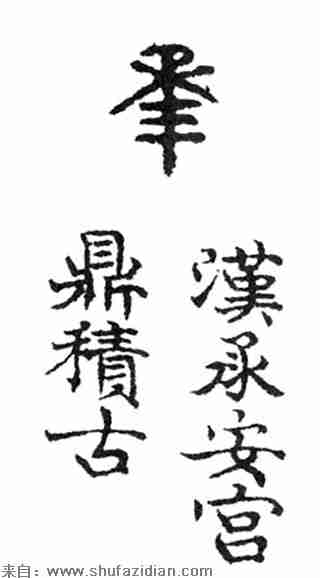 承
漢承安宮
鼎積古
来自：www.shufazidian.com